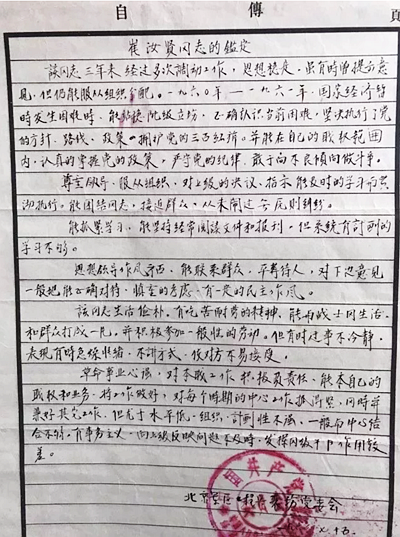 自傳
頁
崔汝賢同志的鑑定
該同志三年来经过多次調动工作，思想稳定，虽有时曾提示意
见，但仍能服从组织分配。一九六〇年——一九六一年，国家经济暂
时发生困难时，能站稳阶级立场，正确认识当前困难，坚决执行了党
的方針、路线、政策，拥护党的三面红旗。并能在自己的职权范围
内，认真的掌握党的政策，严守党的纪律，敢于向不良倾向做斗争。
尊重领导，服从组织，对上级的决议、指示能及时的学习而贯
彻执行。能团结同志，接近群众，从未闹过无原则纠纷。
能抓紧学习，能坚持经常阅读文件和报刊，但系统有計劃的
学习不够。
思想作风，能联系群众，平等待人，对下边意见
一般地能正确对待，慎重的考虑，有一定的民主作风。
該同志生活俭朴，有吃苦耐劳的精神，能与战士同生活
和群众打成一片，并积极参加一般性的劳动。但有时过事不冷静，
表现有时急躁情绪，不讲方式，使对方不易接受。
革命事业心强，对本职工作积极负责任，能本自己的
职权和业务，将工作做好，对每个时期的中心工作抓得紧，同时并
兼好其它工作。但允于水平低，组织、計劃性不强，一般与中心结
合不够。有事务主义，向上级反映问题不及时，发挥干部作用较
差。
北京委員会